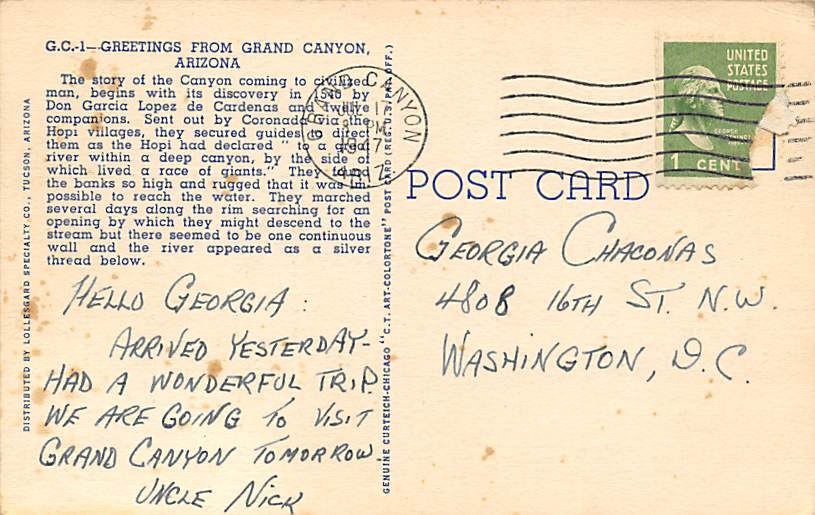 G.C.-1—GREETINGS FROM GRAND CANYON,
ARIZONA
The story of the Canyon coming to civilized
man, begins with its discovery in 1540 by
Don Garcia Lopez de Cardenas and twelve
companions. Sent out by Coronado via the
Hopi villages, they secured guides to direct
them as the Hopi had declared " to a great
river within a deep canyon, by the side of
which lived a race of giants." They found
the banks so high and rugged that it was im-
possible to reach the water. They marched
several days along the rim searching for an
opening by which they might descend to the
stream but there seemed to be one continuous
wall and the river appeared as a silver
thread below.
HELLO GEORGIA:
ARRIVED YESTERDAY-
HAD A WONDERFUL TRIP.
WE ARE GOING TO VISIT
GRAND CANYON TOMORROW.
UNCLE NICK
DISTRIBUTED BY LOLLESGARD SPECIALTY CO., TUCSON, ARIZONA
GENUINE CURTEICH-CHICAGO "C.T. ART-COLORTONE" POST CARD (REG. U.S. PAT. OFF.)
GRAND CANYON
17
PM
1947
UNITED
STATES
POSTAGE
GEORGE
1 CENT
POST CARD
GEORGIA CHACONAS
4808 16TH ST. N.W.
WASHINGTON, D.C.